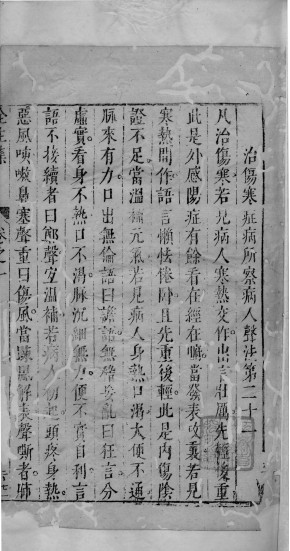 治傷寒症病所察病人聲法第二十三
凡治傷寒若見病人寒熱交作出言壯厲先輕後重
此是外感陽症有餘看在經在府當發表攻裏若見
寒熱間作語言懶怯倦臥且先重後輕此是内傷陰
證不足當溫補元氣若見病人身熱口渴大便不通
脉來有力口出無倫語曰譫語無稽妄亂曰狂言分
虛實看身不熱口不渴脉沉細無力便不實自利言
語不接續者曰鄭聲宜溫補若病人初起頭疼身熱
惡風咳嗽鼻塞聲重曰傷風當疎風解表聲嘶者肺
全生集
卷之一